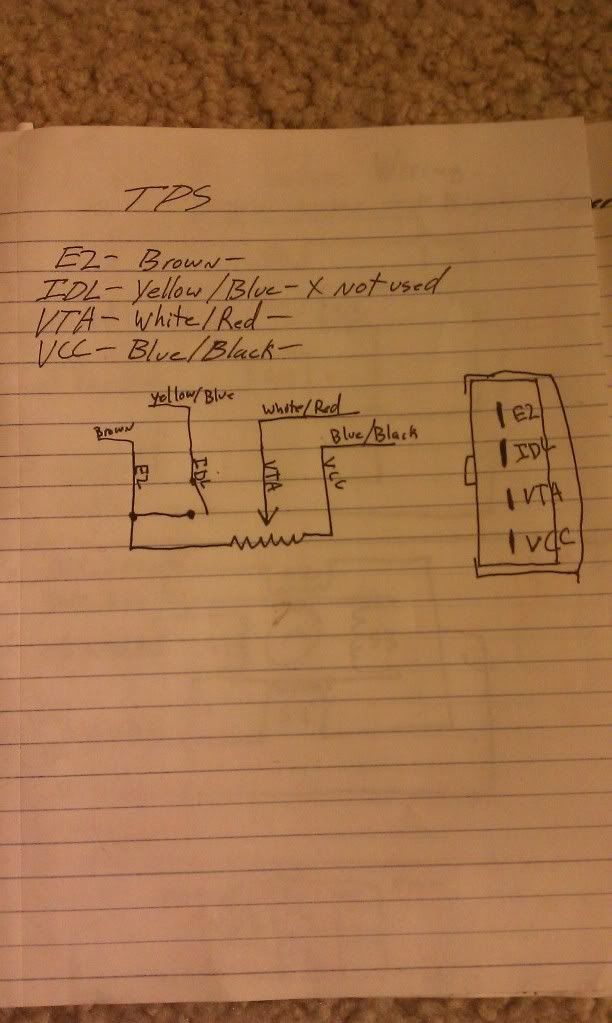 TPS
E2- Brown-
IDL- Yellow/Blue- X Not used
VTA- White/Red-
VCC- Blue/Black-
Yellow/Blue
White/Red
Brown
Blue/Black
E2
IDL
VTA
VCC
E2
IDL
VTA
VCC